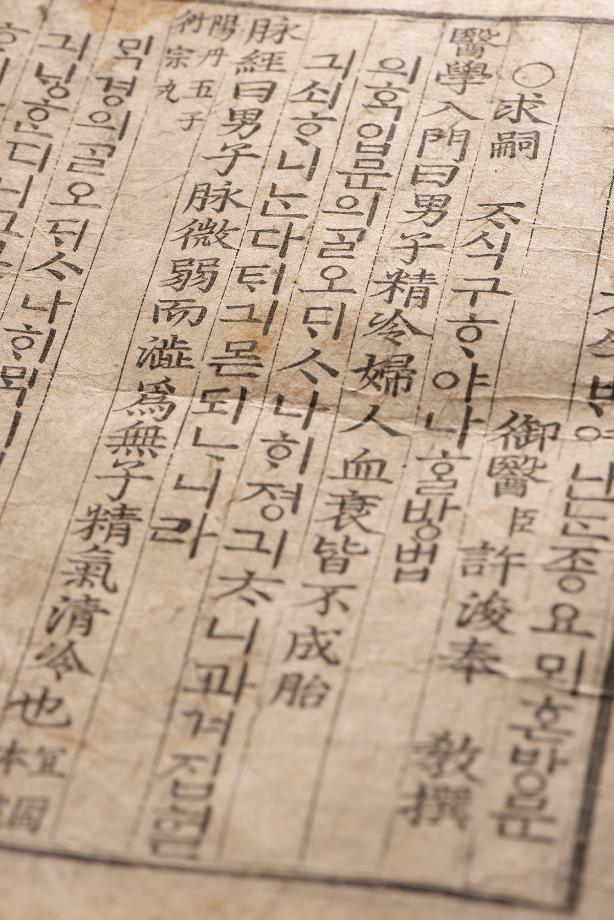 식ᄇᆡ여난ᄂᆞᆫ종요뫼혼방문
御醫臣許浚奉 敎撰
○求嗣 ᄌᆞ식구ᄒᆞ야나ᄒᆞᆯ방법
醫學入門曰男子精冷婦人血衰皆不成胎
의ᄒᆞᆨ입문의ᄀᆞᆯ오ᄃᆡᄉᆞ나ᄒᆡ졍긔ᄎᆞ니과겨집혈
긔쇠ᄒᆞ니ᄂᆞᆫ다ᄐᆡ긔몯되ᄂᆞ니라
脉經曰男子脉微弱而濇爲無子精氣清冷也
冝固
本
陽丹五子
衍宗丸
ᄆᆡᆨ경의ᄀᆞᆯ오ᄃᆡᄉᆞ나ᄒᆡᄆᆡᆨ이
긔닝ᄒᆞᆫ디니